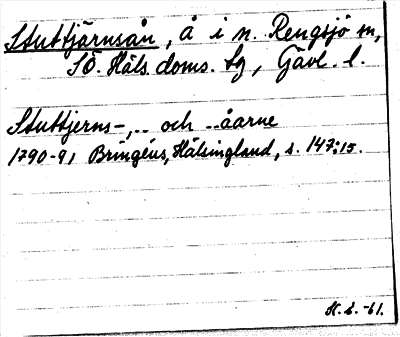 Stuttjärnsån, å i n. Rengsjö sn,
SÖ. Häls. doms. tg, Gävl. l.
Stuttjerns-, .. och ..åarne
1790-91 Bringéus, Hälsingland, s. 147:15.
H.L. -61.